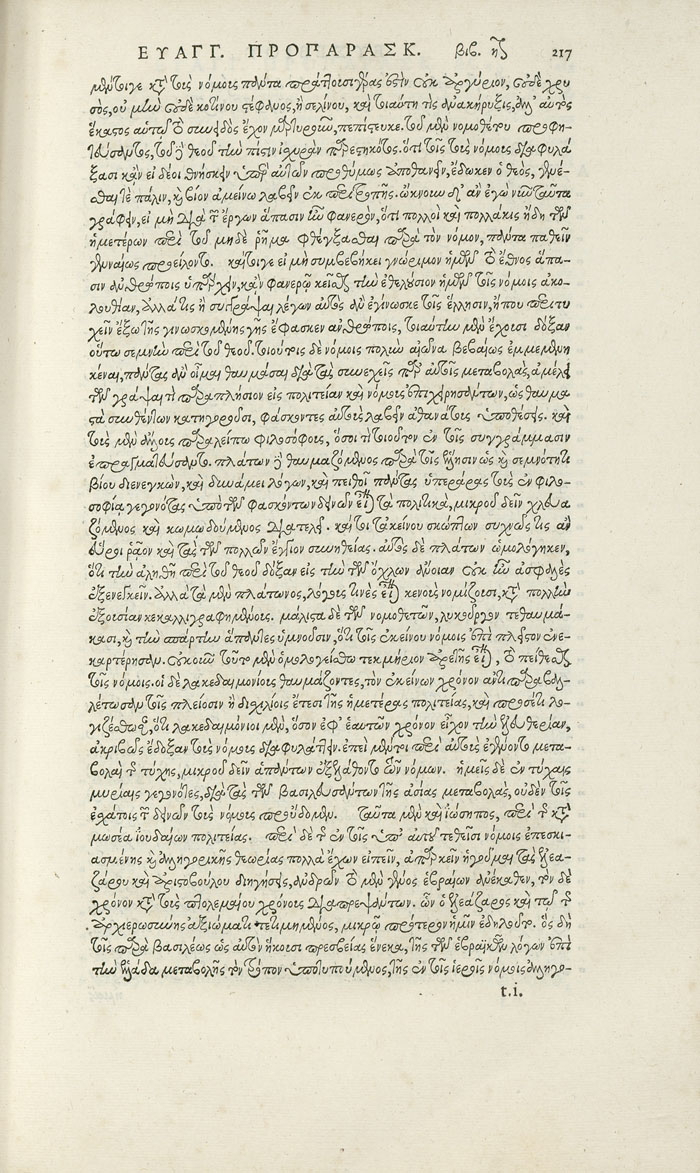 ΕΥΑΓΓ. ΠΡΟΠΑΡΑΣΚ. βιβ. η 217
μέντοιγε κατὰ τοὺς νόμους πάντα πράττουσι γέρας ἐστὶν οὐκ ἀργύριον, οὐδὲ χρυ
σὸς, οὐ μὴν οὐδὲ κοτίνου στέφανος, ἢ σελίνου, καὶ τοιαύτη τὶς ἀνακήρυξις, ἀλλ' αὐτὸς
ἕκαστος αὑτῷ τὸ συνειδὸς ἔχον μαρτυροῦν, πεπίστευκε. τοῦ μὲν νομοθέτου προφη-
τεύσαντος, τοῦ δὲ θεοῦ τὴν πίστιν ἰσχυρὰν παρεστηκότος. ὅτι τοῖς τοὺς νόμους διαφυλά
ξασι κἂν εἰ δέοι θνήσκειν ὑπὲρ αὐτῶν προθύμως ἀποθανεῖν, ἔδωκεν ὁ θεὸς, γενέ-
σθαι τε πάλιν, καὶ βίον ἀμείνω λαβεῖν ἐκ περιτροπῆς. ὤκνουν δ' ἂν ἐγὼ νῦν ταῦτα
γράφειν, εἰ μὴ διὰ τῶν ἔργων ἅπασιν ἦν φανερὸν, ὅτι πολλοὶ καὶ πολλάκις ἤδη τῶν
ἡμετέρων περὶ τοῦ μηδὲ ῥῆμα φθέγξασθαι παρὰ τὸν νόμον, πάντα παθεῖν
γενναίως προείλοντο. καίτοιγε εἰ μὴ συμβεβήκει γνώριμον ἡμῶν τὸ ἔθνος ἅπα-
σιν ἀνθρώποις ὑπάρχειν, κἀν φανερῷ κεῖσθαι τὴν ἐθελούσιον ἡμῶν τοῖς νόμοις ἀκο-
λουθίαν, ἀλλά τις ἢ συγγράψαι λέγων αὐτὸς ἀνεγίνωσκε τοῖς ἕλλησιν, ἤπου περιτυ
χεῖν ἔξω τῆς γινωσκομένης γῆς ἔφασκεν ἀνθρώποις, τοιαύτην μὲν ἔχουσι δόξαν
οὕτω σεμνὴν περὶ τοῦ θεοῦ. τοιούτοις δὲ νόμοις πολὺν αἰῶνα βεβαίως ἐμμεμενη
κέναι, πάντας ἂν οἶμαι θαυμάσαι διὰ τὰς συνεχεῖς παρ' αὐτοῖς μεταβολὰς, ἀμέλει
τῶν γράψαι τὶ παραπλήσιον εἰς πολιτείαν καὶ νόμους ἐπιχειρησάντων, ὡς θαυμα
στὰ συνθέντων κατηγοροῦσι, φάσκοντες αὐτοὺς λαβεῖν ἀθανάτους ὑποθέσεις. καὶ
τοὺς μὲν ἄλλους παραλείπω φιλοσόφους, ὅσοι τὶ τοιοῦτον ἐν τοῖς συγγράμμασιν
ἐπραγματεύσαντο. πλάτων δὲ θαυμαζόμενος παρὰ τοῖς ἕλλησιν ὡς καὶ σεμνότητι
βίου διενεγκὼν, καὶ δυνάμει λόγων, καὶ πειθοῖ πάντας ὑπεράρας τοὺς ἐν φιλο-
σοφίᾳ γεγονότας, ὑπὸ τῶν φασκόντων δεινῶν εἶναι τὰ πολιτικὰ, μικροῦ δεῖν χλευα
ζόμενος καὶ κωμῳδούμενος διατελεῖ. καί τοι τἀκείνου σκόπτων συχνῶς τὶς ἂν
εὕροι ῥᾶον καὶ τὰς τῶν πολλῶν ἔγγιον συνηθείας. αὐτὸς δὲ πλάτων ὡμολόγηκεν,
ὅτι τὴν ἀληθῆ περὶ τοῦ θεοῦ δόξαν εἰς τὴν τῶν ὄχλων ἄνοιαν οὐκ ἦν ἀσφαλὲς
ἐξενεγκεῖν. ἀλλὰ τὰ μὲν πλάτωνος, λόγους τινὲς εἶναι κενοὺς νομίζουσι, κατὰ πολλὴν
ἐξουσίαν κεκαλλιγραφημένους. μάλιστα δὲ τῶν νομοθετῶν, λυκοῦργον τεθαυμά-
κασι, καὶ τὴν σπάρτην ἅπαντες ὑμνοῦσιν, ὅτι τοῖς ἐκείνου νόμοις ἐπὶ πλεῖστον ἐνε-
καρτέρησαν. οὐκοῦν τοῦτο μὲν ὁμολογείσθω τεκμήριον ἀρετῆς εἶναι, τὸ πείθεσθαι
τοῖς νόμοις. οἱ δὲ λακεδαιμονίους θαυμάζοντες, τὸν ἐκείνων χρόνον ἀντιπαραβαλ-
λέτωσαν τοῖς πλείοσιν ἢ δισχιλίοις ἔτεσι τῆς ἡμετέρας πολιτείας, καὶ προσέτι λο-
γιζέσθωσαν, ὅτι λακεδαιμόνιοι μὲν, ὅσον ἐφ' ἑαυτῶν χρόνον εἶχον τὴν ἐλευθερίαν,
ἀκριβῶς ἔδοξαν τοὺς νόμους διαφυλάττειν. ἐπεὶ μέντοι περὶ αὐτοὺς ἐγένοντο μετα-
βολαὶ τῆς τύχης, μικροῦ δεῖν ἁπάντων ἐξελάθοντο τῶν νόμων. ἡμεῖς δὲ ἐν τύχαις
μυρίαις γεγονότες, διὰ τὰς τῶν βασιλευσάντων τῆς ἀσίας μεταβολὰς, οὐδ' ἐν τοῖς
ἐσχάτοις τῶν δεινῶν τοὺς νόμους προὔδομεν. ταῦτα μὲν καὶ ἰώσηπος, περὶ τῆς κατὰ
μωσέα ἰουδαίων πολιτείας. περὶ δὲ τῆς ἐν τοῖς ὑπ' αὐτοῦ τεθεῖσι νόμοις ἐπεσκι-
ασμένης καὶ ἀλληγορικῆς θεωρίας πολλὰ ἔχων εἰπεῖν, ἀπαρκεῖν ἡγοῦμαι τὰς ἐλεα-
ζάρου καὶ ἀριστοβούλου διηγήσεις, ἀνδρῶν τὸ μὲν γένος ἑβραίων ἀνέκαθεν, τὸν δὲ
χρόνον κατὰ τοὺς πτολεμαίου χρόνους διαπρεψάντων. ὧν ὁ ἐλεάζαρος καὶ τῷ τῆς
ἀρχιερωσύνης ἀξιώματι τετιμημένος, μικρῷ πρότερον ἡμῖν ἐδηλοῦτο. ὃς δὴ
τοῖς παρὰ βασιλέως ὡς αὐτὸν ἥκουσι πρεσβείας ἕνεκα, τῆς τῶν ἑβραϊκῶν λόγων ἐπὶ
τὴν ἑλλάδα μεταβολῆς τὸν τρόπον ὑποτυπούμενος, τῆς ἐν τοῖς ἱεροῖς νόμοις ἀλληγο-
t.i.